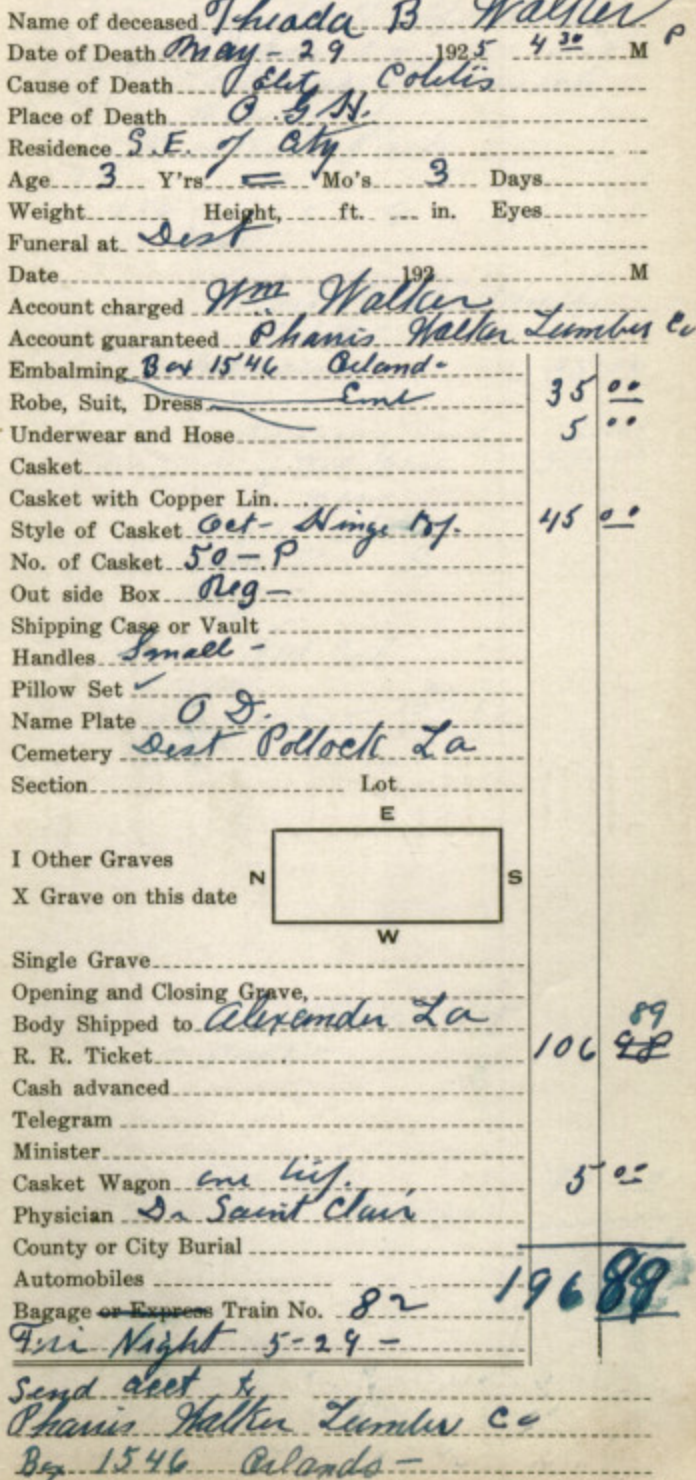 Name of deceased Theada B Walker
Date of Death May - 29 1925 4 30 M P
Cause of Death Colitis
Place of Death O.G.H.
Residence S.E. of City
Age 3 Y'rs = Mo's 3 Days
Weight Height, ft. in. Eyes
Funeral at Dest
Date 192 M
Account charged Wm Walker
Account guaranteed Phanis Walker Lumber Co
Embalming Box 1546 Orlando - 35 00
Robe, Suit, Dress Emb 5 00
Underwear and Hose
Casket
Casket with Copper Lin.
Style of Casket Oct - Hinge Top. 45 00
No. of Casket 50 - P
Out side Box Reg -
Shipping Case or Vault
Handles Small -
Pillow Set ✓
Name Plate O D.
Cemetery Dest Pollock La
Section Lot
E
I Other Graves
N S
X Grave on this date
W
Single Grave
Opening and Closing Grave,
Body Shipped to Alexander La 89
R. R. Ticket 106 98
Cash advanced
Telegram
Minister
Casket Wagon one 5 00
Physician Dr Saint Clair
County or City Burial
Automobiles 196 89
Bagage or Express Train No. 82
Fri Night 5-29 -
Send acct to
Phanis Walker Lumber Co
Box 1546 Orlando -